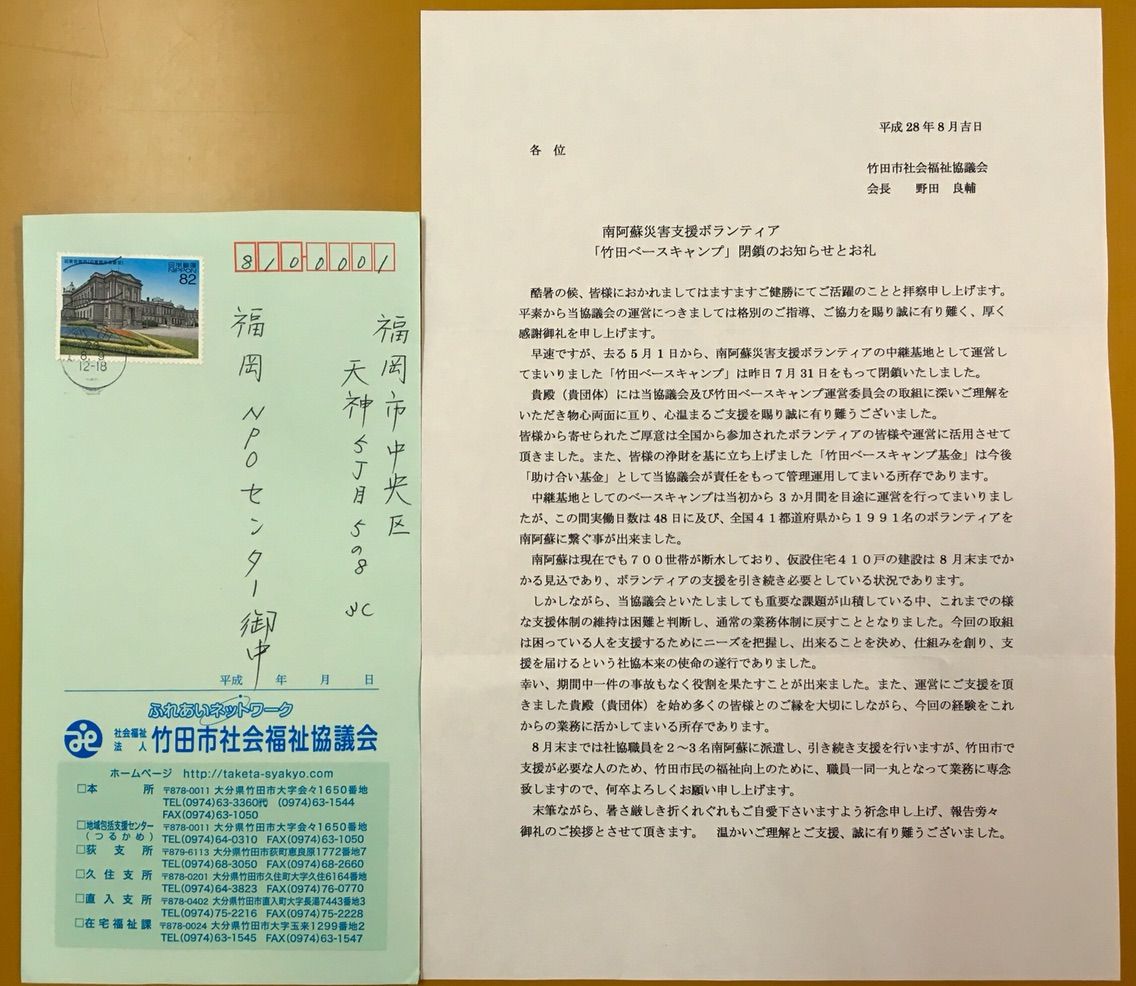 日本郵便
NIPPON
82
8.9
12-18
8100001
福岡市中央区
天神5丁目5の8
福岡NPOセンター御中
平成　年　月　日
ふれあいネットワーク
社会福祉法人 竹田市社会福祉協議会
ホームページ http://taketa-syakyo.com
□本　所 〒878-0011 大分県竹田市大字会々1650番地
TEL(0974)63-3360代 (0974)63-1544
FAX(0974)63-1050
□地域包括支援センター(つるかめ) 〒878-0011 大分県竹田市大字会々1650番地
TEL(0974)64-0310 FAX(0974)63-1050
□荻支所 〒879-6113 大分県竹田市荻町恵良原1772番地7
TEL(0974)68-3050 FAX(0974)68-2660
□久住支所 〒878-0201 大分県竹田市久住町大字久住6164番地
TEL(0974)64-3823 FAX(0974)76-0770
□直入支所 〒878-0402 大分県竹田市直入町大字長湯7443番地3
TEL(0974)75-2216 FAX(0974)75-2228
□在宅福祉課 〒878-0024 大分県竹田市大字玉来1299番地2
TEL(0974)63-1545 FAX(0974)63-1547
平成28年8月吉日
各　位
竹田市社会福祉協議会
会長　野田　良輔
南阿蘇災害支援ボランティア
「竹田ベースキャンプ」閉鎖のお知らせとお礼
酷暑の候、皆様におかれましてはますますご健勝にてご活躍のことと拝察申し上げます。
平素から当協議会の運営につきましては格別のご指導、ご協力を賜り誠に有り難く、厚く
感謝御礼を申し上げます。
早速ですが、去る5月1日から、南阿蘇災害支援ボランティアの中継基地として運営し
てまいりました「竹田ベースキャンプ」は昨日7月31日をもって閉鎖いたしました。
貴殿（貴団体）には当協議会及び竹田ベースキャンプ運営委員会の取組に深いご理解を
いただき物心両面に亘り、心温まるご支援を賜り誠に有り難うございました。
皆様から寄せられたご厚意は全国から参加されたボランティアの皆様や運営に活用させて
頂きました。また、皆様の浄財を基に立ち上げました「竹田ベースキャンプ基金」は今後
「助け合い基金」として当協議会が責任をもって管理運用してまいる所存であります。
中継基地としてのベースキャンプは当初から3か月間を目途に運営を行ってまいりまし
たが、この間実働日数は48日に及び、全国４１都道府県から１９９１名のボランティアを
南阿蘇に繋ぐ事が出来ました。
南阿蘇は現在でも７００世帯が断水しており、仮設住宅４１０戸の建設は8月末までか
かる見込であり、ボランティアの支援を引き続き必要としている状況であります。
しかしながら、当協議会といたしましても重要な課題が山積している中、これまでの様
な支援体制の維持は困難と判断し、通常の業務体制に戻すこととなりました。今回の取組
は困っている人を支援するためにニーズを把握し、出来ることを決め、仕組みを創り、支
援を届けるという社協本来の使命の遂行でありました。
幸い、期間中一件の事故もなく役割を果たすことが出来ました。また、運営にご支援を頂
きました貴殿（貴団体）を始め多くの皆様とのご縁を大切にしながら、今回の経験をこれ
からの業務に活かしてまいる所存であります。
8月末までは社協職員を２～３名南阿蘇に派遣し、引き続き支援を行いますが、竹田市で
支援が必要な人のため、竹田市民の福祉向上のために、職員一同一丸となって業務に専念
致しますので、何卒よろしくお願い申し上げます。
末筆ながら、暑さ厳しき折くれぐれもご自愛下さいますよう祈念申し上げ、報告旁々
御礼のご挨拶とさせて頂きます。　温かいご理解とご支援、誠に有り難うございました。